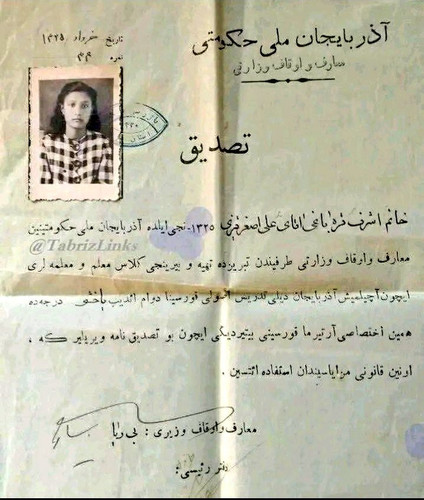 آذربایجان ملی حکومتی
معارف و اوقاف وزارتی
تاریخ خرداد ۱۳۲۵
نمره ۳۴
تصدیق
خانم اشرف قره باغی علی اصغر ۱۳۲۵-نجی ایلده آذربایجان ملی حکومتینین
@TabrizLinks
معارف و اوقاف وزارتی طرفیندن تبریزده تهیه و بیرینجی کلاس معلم و معلمه لری
ایچون آچیلمیش آذربایجان دیلی تدریس اصولی قورسینا دوام ائدیب یاخشی درجه ده
همین اختصاصی آرتیرما قورسینی بیتیردیگی ایچون بو تصدیق نامه ویریلیر که ،
اونین قانونی مزایاسیندان استفاده ائتسین .
معارف و اوقاف وزیری : بی ریا
دفتر رئیسی :